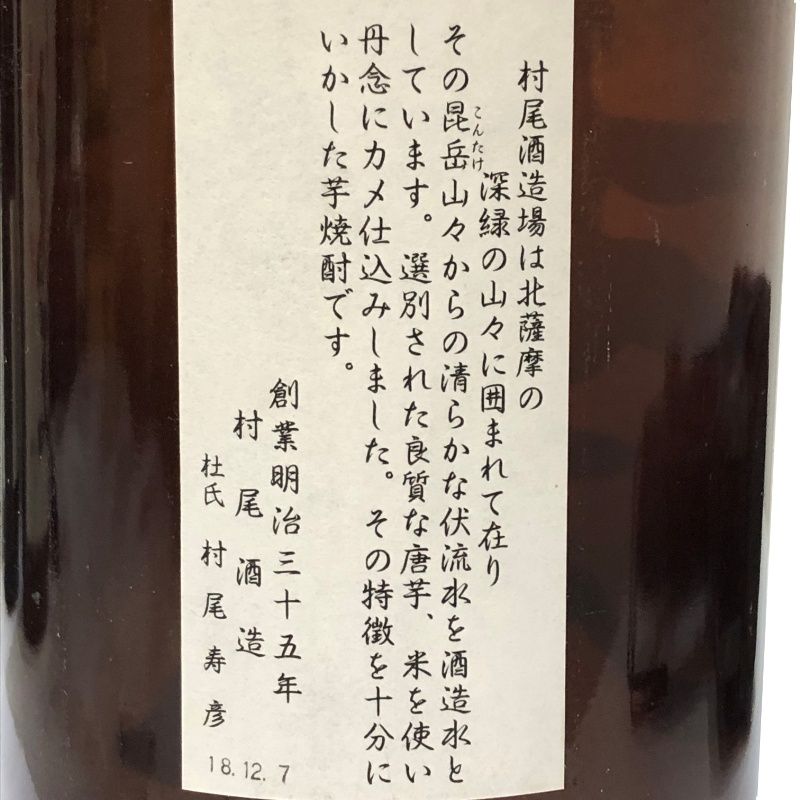 村尾酒造場は北薩摩の
深緑の山々に囲まれて在り
こんたけ
その昆岳山々からの清らかな伏流水を酒造水と
しています。選別された良質な唐芋、米を使い
丹念にカメ仕込みしました。その特徴を十分に
いかした芋焼酎です。
創業明治三十五年
村尾酒造
杜氏 村尾寿彦
18.12.7